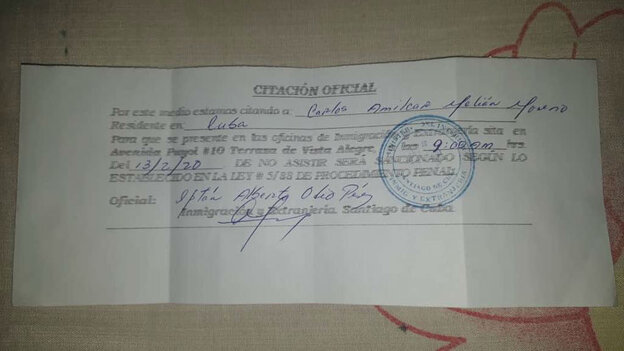 CITACIÓN OFICIAL
Por este medio estamos citando a: Carlos Amilcar Melián Moreno
Residente en: Cuba
Para que se presente en las oficinas de Inmigración y Extranjería sita en
Avenida Pujol #10 Terraza de Vista Alegre, a las 9:00 am hrs.
Del 13/2/20. DE NO ASISTIR SERÁ SANCIONADO SEGÚN LO
ESTABLECIDO EN LA LEY # 5/88 DE PROCEDIMIENTO PENAL.
Oficial: Alberto
Inmigración y Extranjería. Santiago de Cuba.